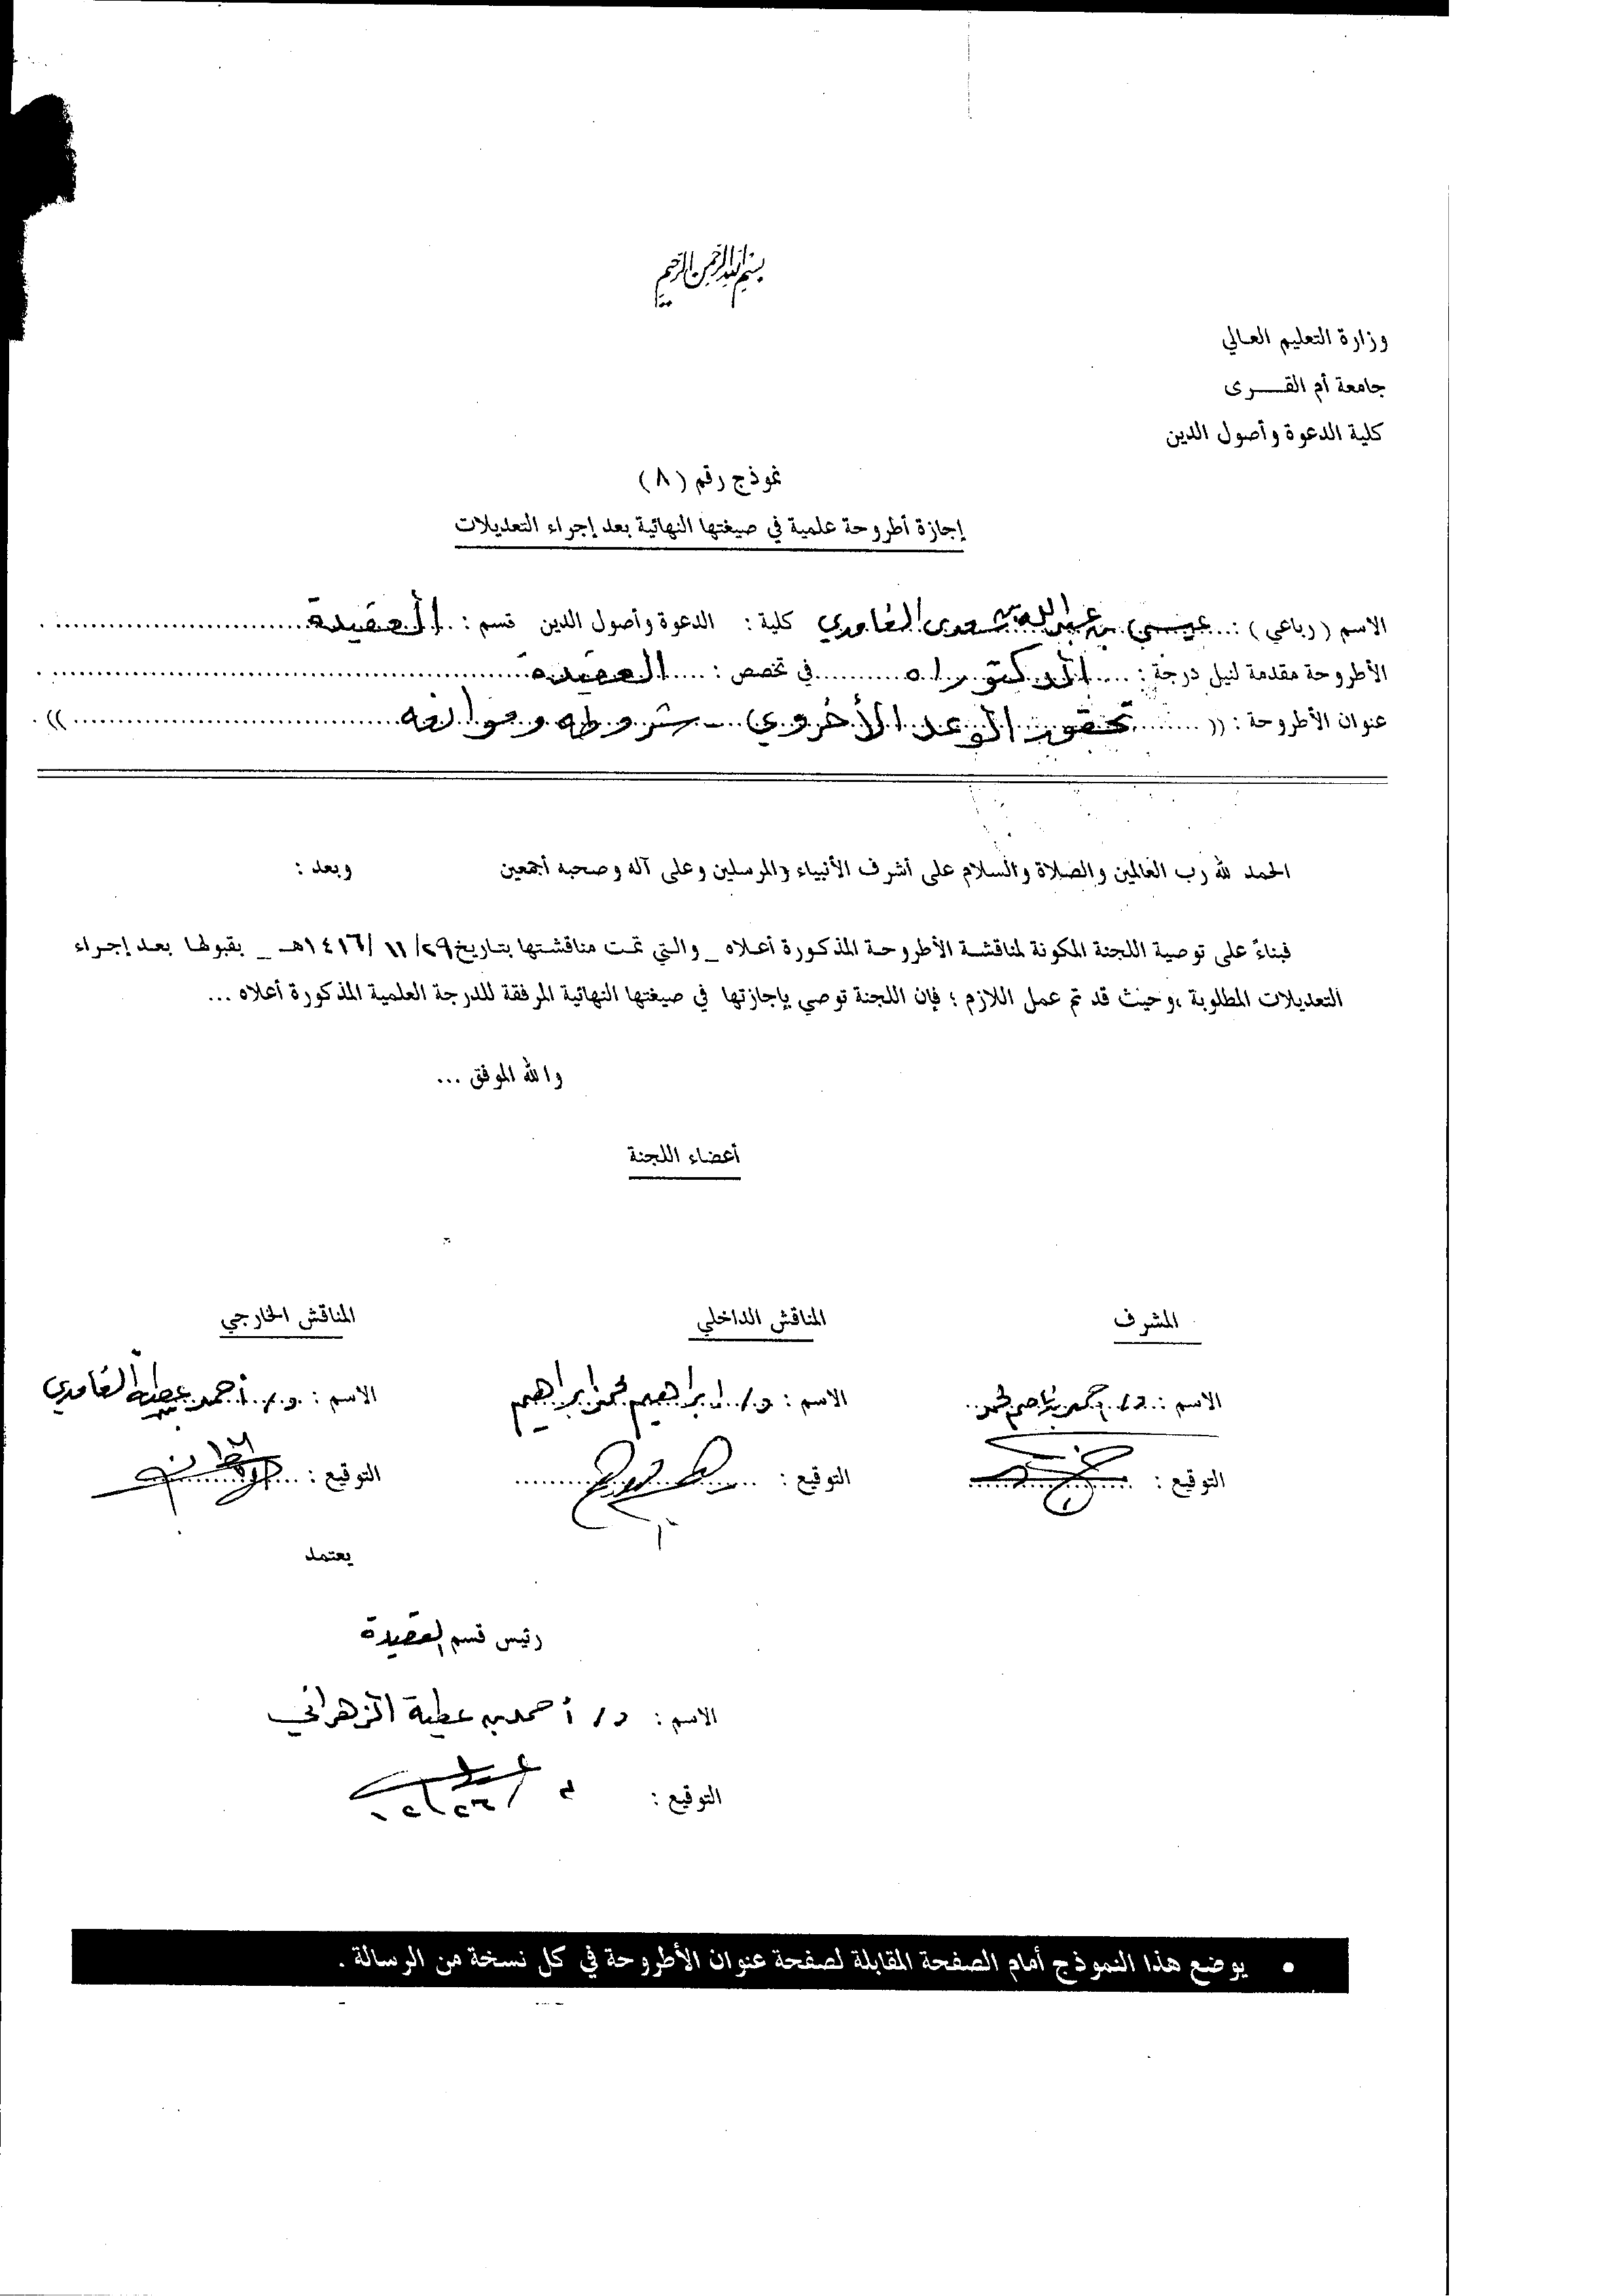 بسم الله الرحمن الرحيم
وزارة التعليم العالي
جامعة أم القــــرى
كلية الدعوة وأصول الدين
نموذج رقم ( ٨ )
إجازة أطروحة علمية في صيغتها النهائية بعد إجراء التعديلات
الاسم ( رباعي ) : عيسى بن عبدالله بن سعدي الغامدي كلية : الدعوة وأصول الدين قسم : العقيدة
الأطروحة مقدمة لنيل درجة : الدكتوراه في تخصص : العقيدة
عنوان الأطروحة : (( تحقق الوعد الأخروي - شروطه وموانعه ))
الحمد لله رب العالمين والصلاة والسلام على أشرف الأنبياء والمرسلين وعلى آله وصحبه أجمعين وبعد :
فبناءً على توصية اللجنة المكونة لمناقشة الأطروحة المذكورة أعلاه _ والتي تمت مناقشتها بتاريخ ٢٩/ ١١ /١٤١٦هـ _ بقبولها بعد إجراء
التعديلات المطلوبة ، وحيث قد تم عمل اللازم ؛ فإن اللجنة توصي بإجازتها في صيغتها النهائية المرفقة للدرجة العلمية المذكورة أعلاه ...
والله الموفق ...
أعضاء اللجنة
المشرف المناقش الداخلي المناقش الخارجي
الاسم : د/ أحمد بن ناصر الحمد الاسم : د/ ابراهيم محمد ابراهيم الاسم : د/ أحمد عطية الغامدي
التوقيع : التوقيع : التوقيع :
يعتمد
رئيس قسم العقيدة
الاسم : د/ أحمد بن عطية الزهراني
التوقيع :
• يوضع هذا النموذج أمام الصفحة المقابلة لصفحة عنوان الأطروحة في كل نسخة من الرسالة .